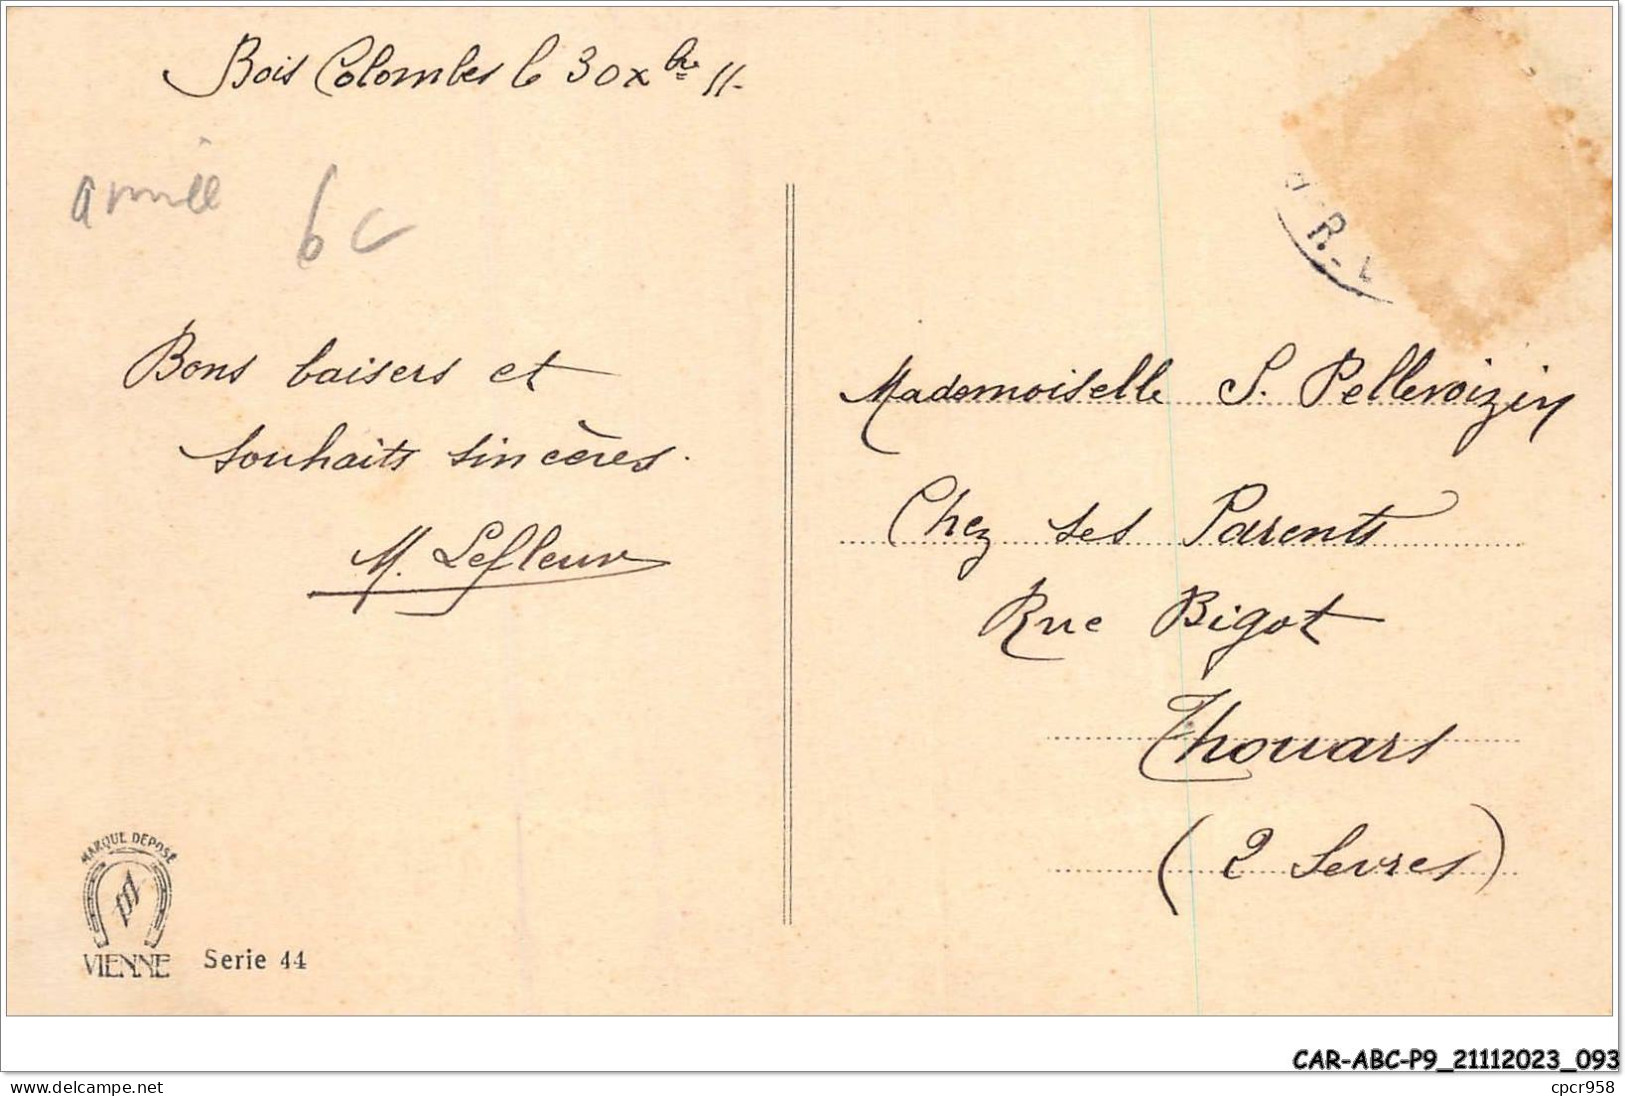 Bois Colombes le 30 Xbre 11.
année 6c
R.
Bons baisers et
souhaits sincères.
M. Lefleur
Mademoiselle S. Pellevoizin
Chez ses Parents
Rue Bigot
Thouars
(2 Sevres)
MARQUE DEPOSÉ
VIENNE Serie 44
CAR-ABC-P9_21112023_093
www.delcampe.net cpcr958